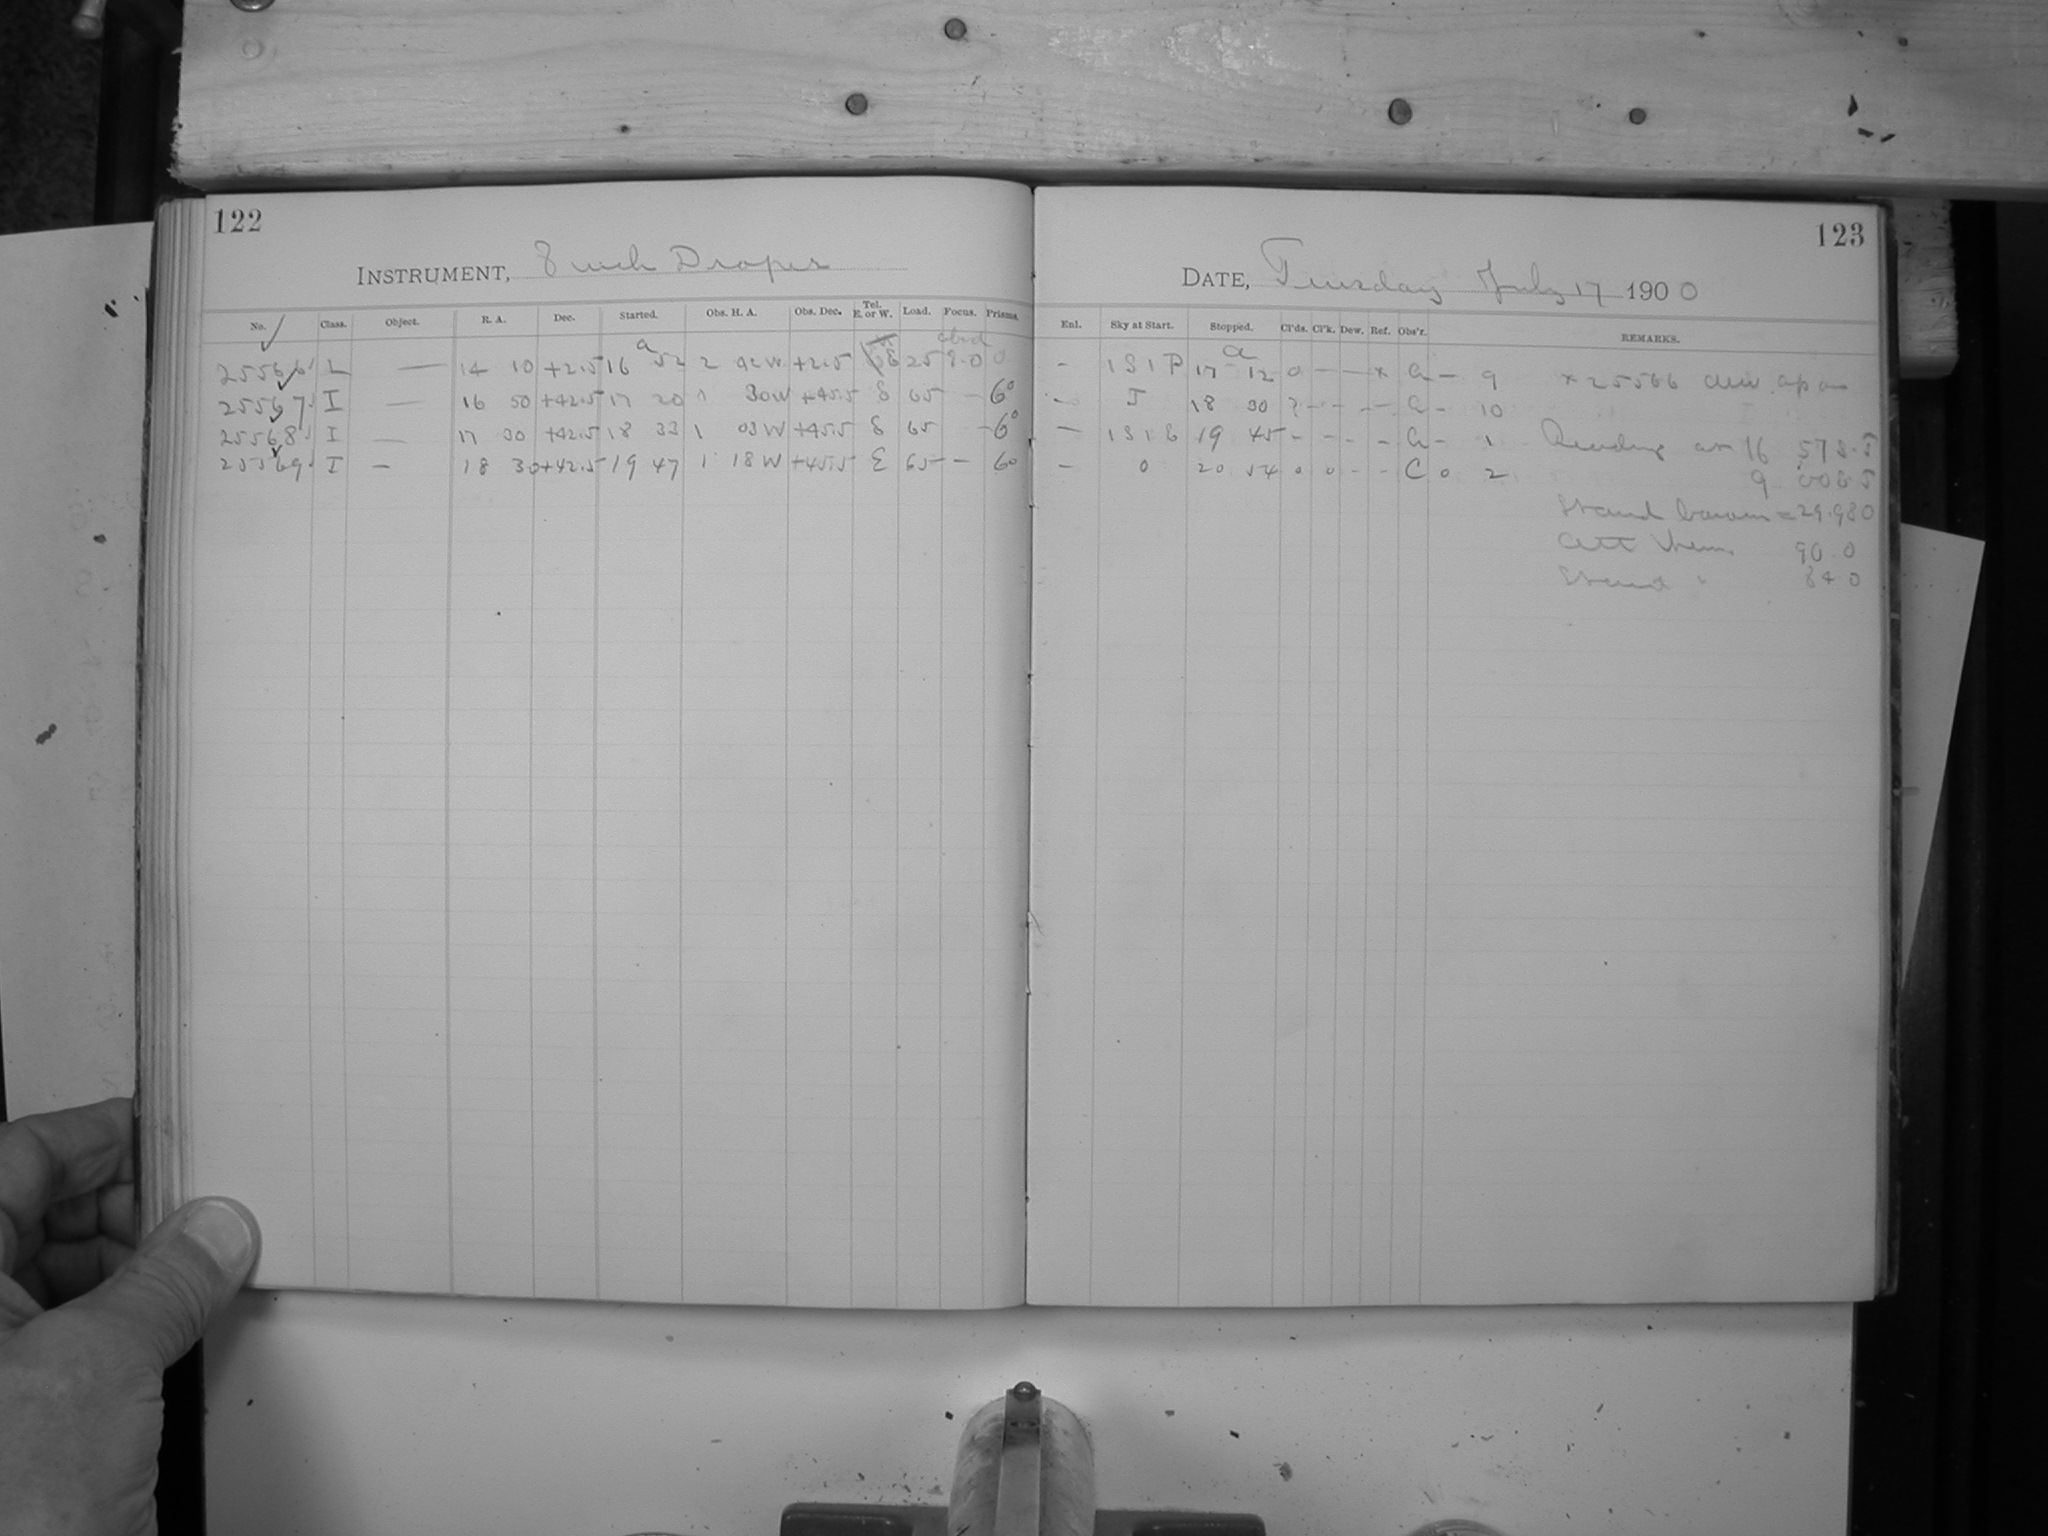 122
INSTRUMENT, 8 inch Draper
No. Class. Object. R. A. Dec. Started. Obs. H. A. Obs. Dec. Tel. E. or W. Load. Focus. Prisms.
25566 L — 14 10 +2.5 16 52 2 42W +2.5 E 25 9.0 0
25567 I — 16 50 +42.5 17 20 30W +45.5 E 65 — 6°
25568 I — 17 30 +42.5 18 33 1 03W +45.5 E 65 — 6°
25569 I — 18 30 +42.5 19 47 1 18W +45.5 E 65 — 6°
123
DATE, Tuesday July 17 1900
Enl. Sky at Start. Stopped. Cl'ds. Cl'k. Dew. Ref. Obs'r. REMARKS.
— 1S1P 17 12 0 — — x — 9 x 25566
— 18 30 ? — — — — 10
— 19 45 — — — — — 1 Reading 16 578.5
— 0 20 54 0 0 — — C 0 2 9
Stand barom = 29.980
Att Therm 90.0
Stand " 84 0